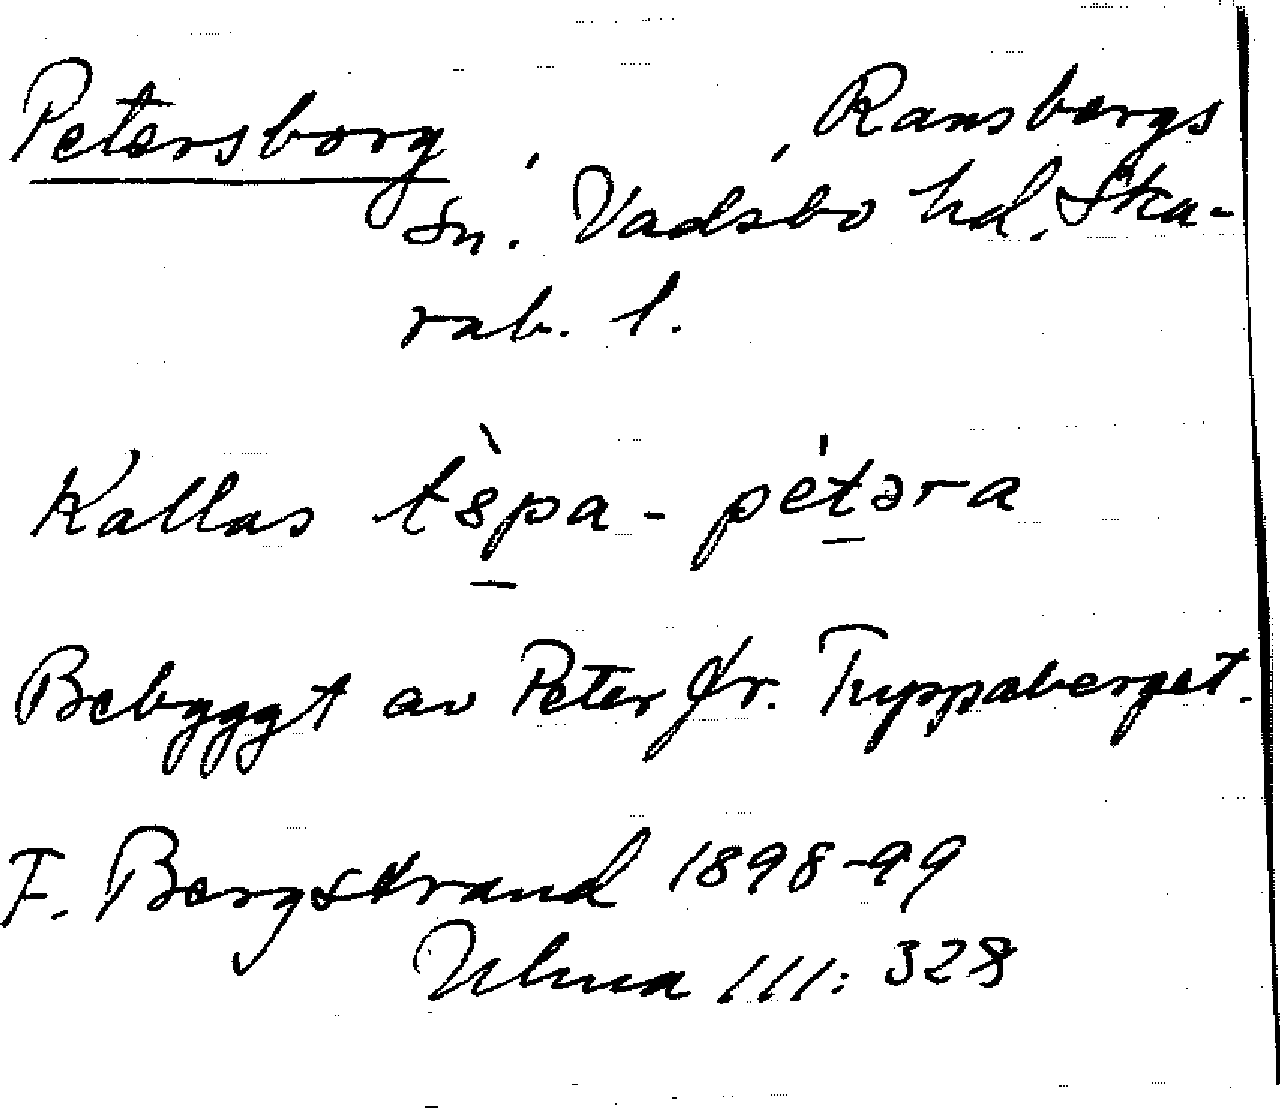 Petersborg, Ransbergs
sn. Vadsbo hd, Ska-
rab. l.
Kallas tɛ̀pa-pétəra
Bebyggt av Peter fr. Typpaberget.
F. Bergstrand 1898-99
Ulma 111: 328